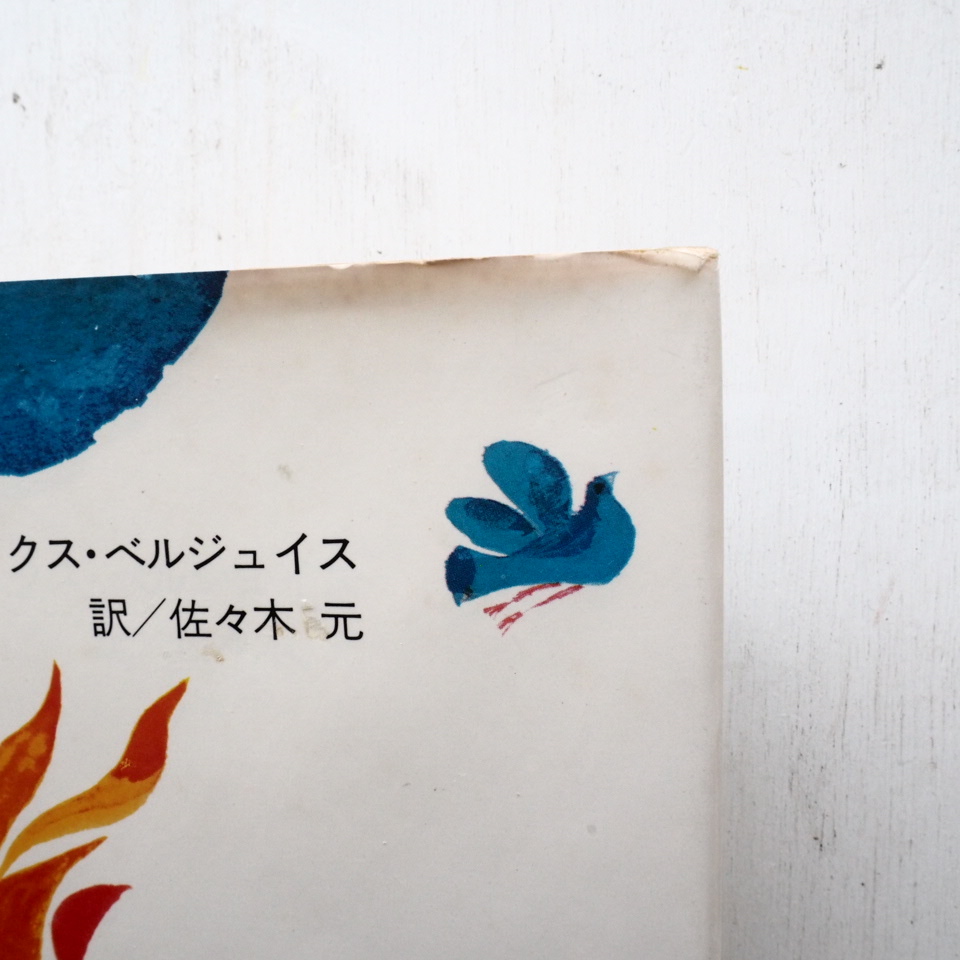 クス・ベルジュイス
訳／佐々木 元